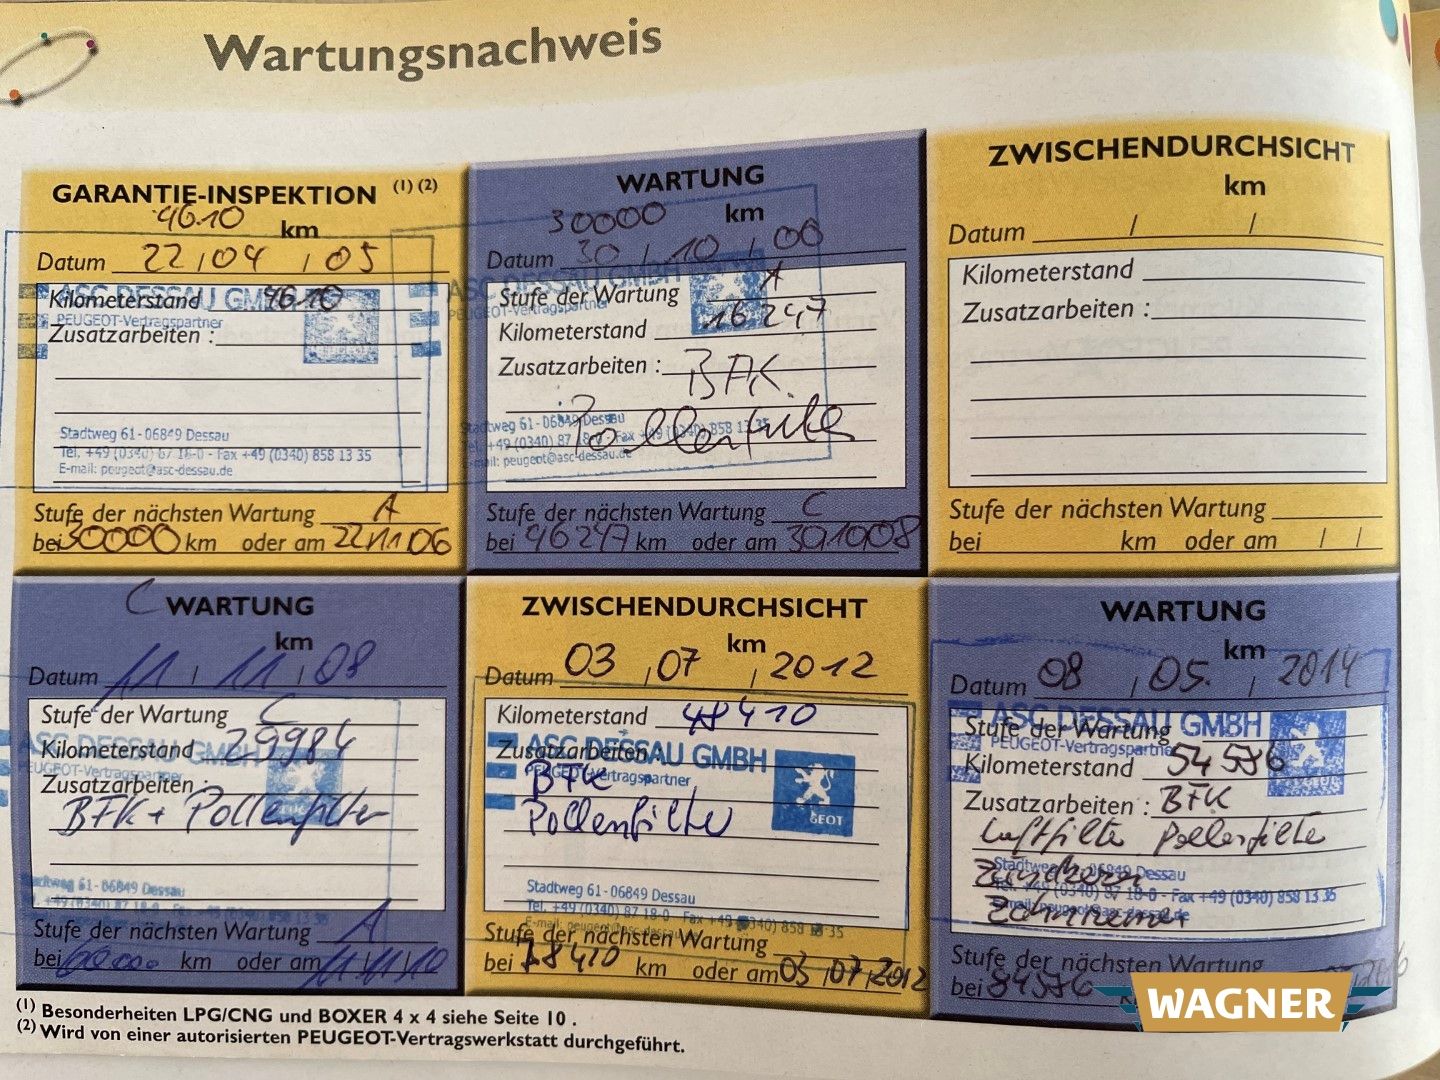 Wartungsnachweis
GARANTIE-INSPEKTION (1) (2)
4610 km
Datum 22 / 04 / 05
ASC DESSAU GMBH
Kilometerstand 4610
PEUGEOT-Vertragspartner
Zusatzarbeiten :
Stadtweg 61 - 06849 Dessau
Tel. +49 (0340) 87 18-0 - Fax +49 (0340) 858 13 35
E-mail: peugeot@asc-dessau.de
Stufe der nächsten Wartung A
bei 30000 km oder am 22/11/06
WARTUNG
30000 km
Datum 30 / 10 / 06
ASC DESSAU GMBH
Stufe der Wartung A
PEUGEOT-Vertragspartner
Kilometerstand 16247
Zusatzarbeiten : BFK
Pollenfilter
Stadtweg 61 - 06849 Dessau
Tel. +49 (0340) 87 18-0 - Fax +49 (0340) 858 13 35
E-mail: peugeot@asc-dessau.de
Stufe der nächsten Wartung C
bei 46247 km oder am 30.10.08
ZWISCHENDURCHSICHT
km
Datum / /
Kilometerstand
Zusatzarbeiten :
Stufe der nächsten Wartung
bei km oder am / /
C WARTUNG
km
Datum 11 / 11 / 08
Stufe der Wartung C
ASC DESSAU GMBH
Kilometerstand 29984
PEUGEOT-Vertragspartner
Zusatzarbeiten :
BFK + Pollenfilter
Stadtweg 61 - 06849 Dessau
Stufe der nächsten Wartung A
bei 60000 km oder am 11/11/10
ZWISCHENDURCHSICHT
km
Datum 03 / 07 / 2012
Kilometerstand 48410
ASC DESSAU GMBH
Zusatzarbeiten :
PEUGEOT-Vertragspartner
BFK
Pollenfilter
Stadtweg 61 - 06849 Dessau
Tel. +49 (0340) 87 18-0 Fax +49 (0340) 858 13 35
E-mail: peugeot@asc-dessau.de
Stufe der nächsten Wartung
bei 78410 km oder am 03 / 07 / 2012
WARTUNG
km
Datum 08 / 05. / 2014
ASC DESSAU GMBH
Stufe der Wartung
PEUGEOT-Vertragspartner
Kilometerstand 54586
Zusatzarbeiten : BFK
Luftfilter Pollenfilter
Stadtweg 61 - 06849 Dessau
Zündkerzen
Tel. +49 (0340) 87 18-0 - Fax +49 (0340) 858 13 35
Zahnriemen
Stufe der nächsten Wartung
bei 84586
WAGNER
(1) Besonderheiten LPG/CNG und BOXER 4 x 4 siehe Seite 10 .
(2) Wird von einer autorisierten PEUGEOT-Vertragswerkstatt durchgeführt.